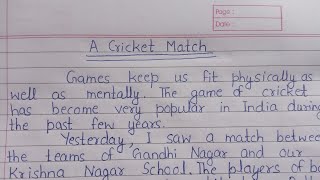 Page :
Date :
A Cricket Match
Games keep us fit physically as
well as mentally. The game of cricket
has become very popular in India during
the past few years.
Yesterday, I saw a match between
the teams of Gandhi Nagar and our
Krishna Nagar School. The players of bo